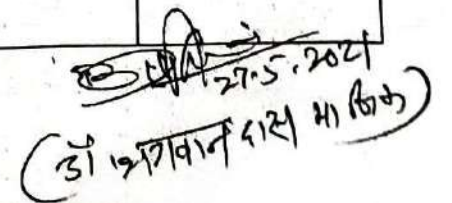 27.5.2021
(डॉ भगवान दास माणिक)